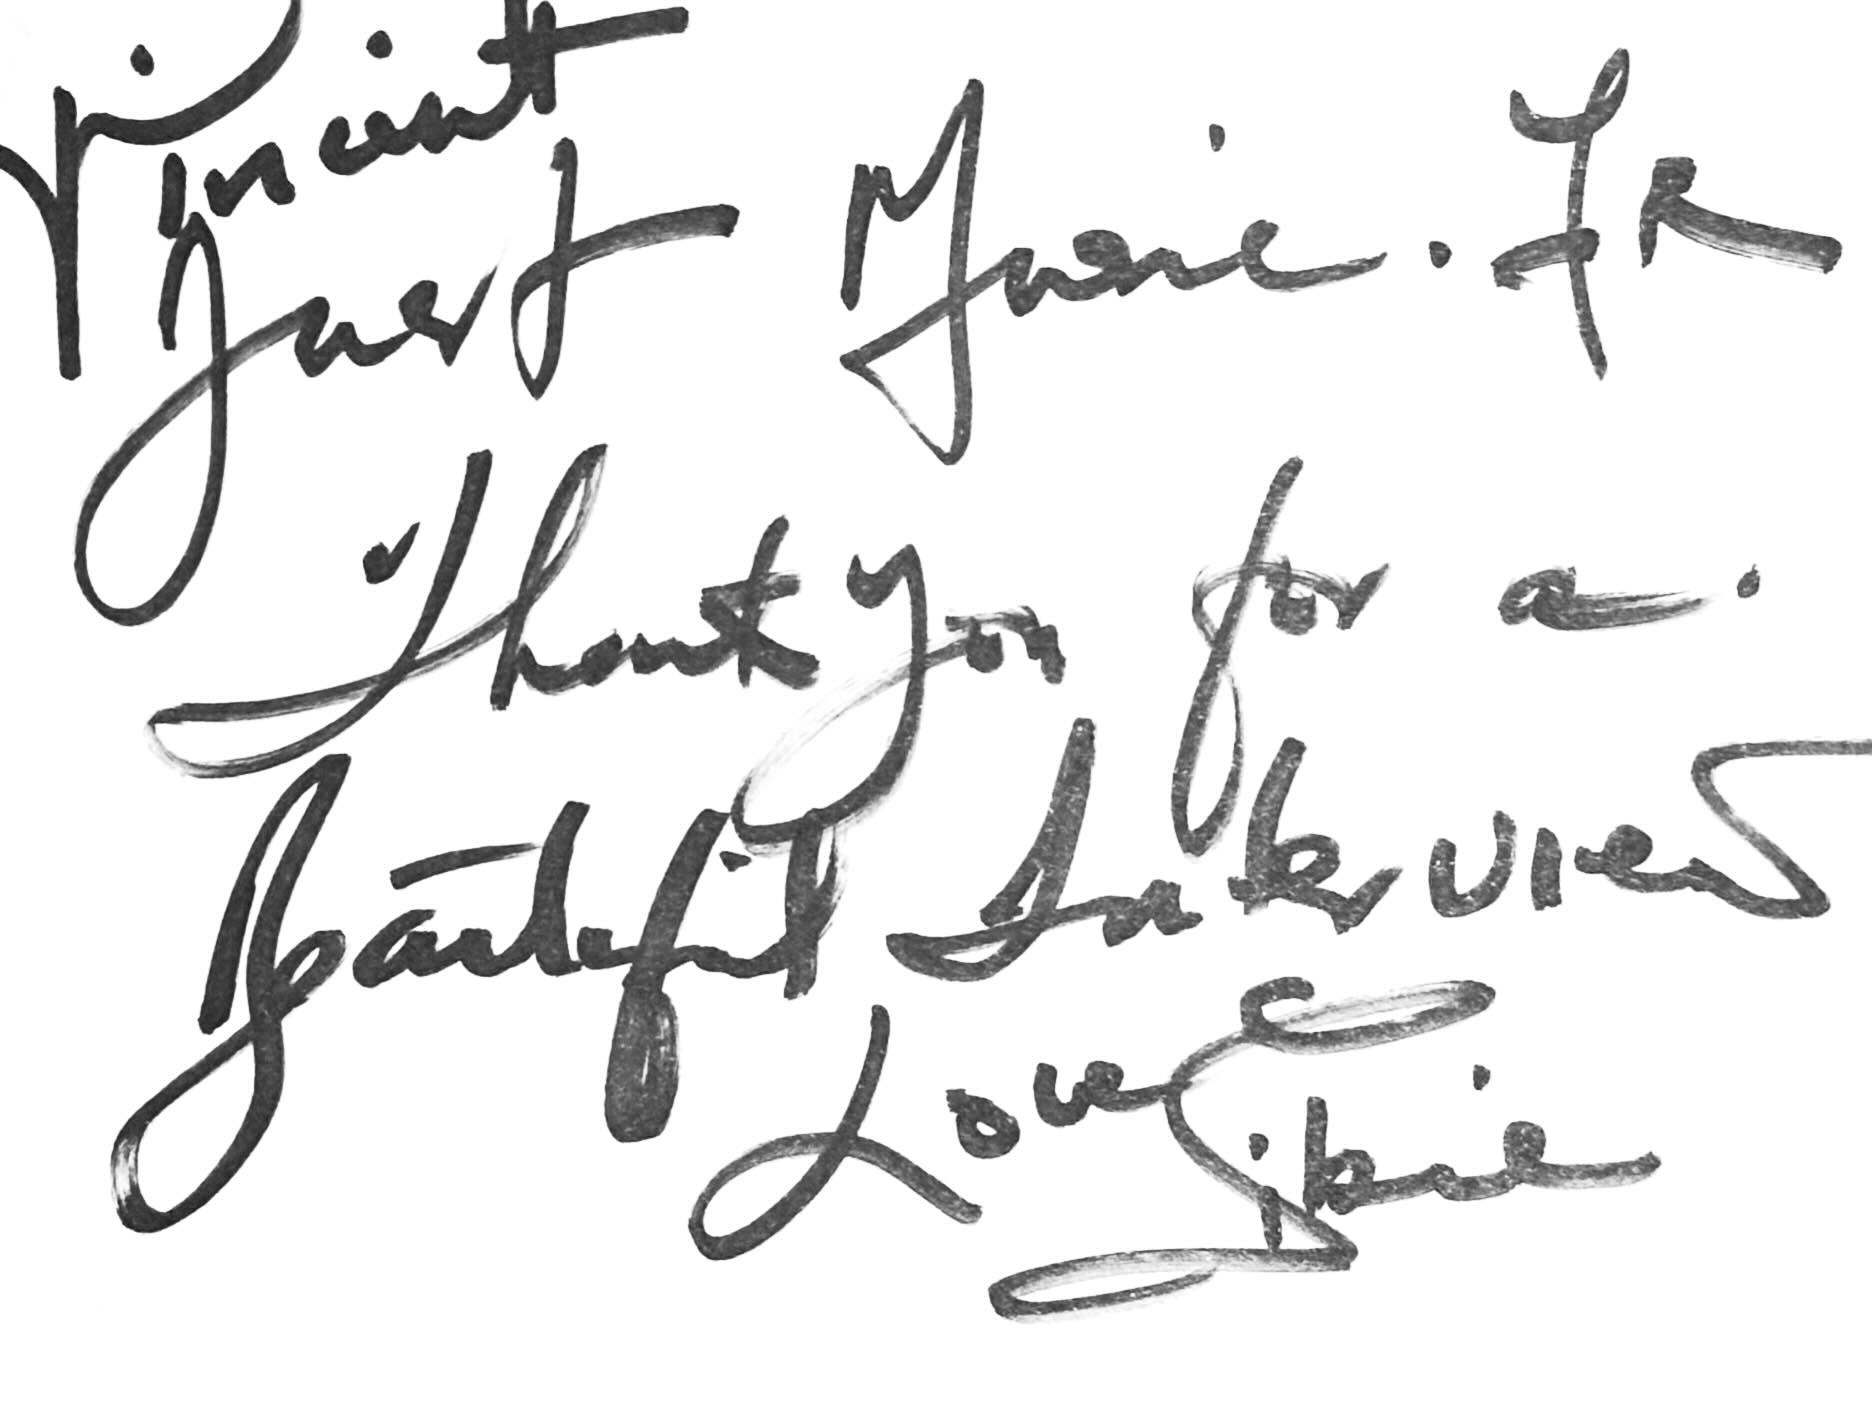 Vincent
. FR
Thank you for a.
Beautiful Interview
Love